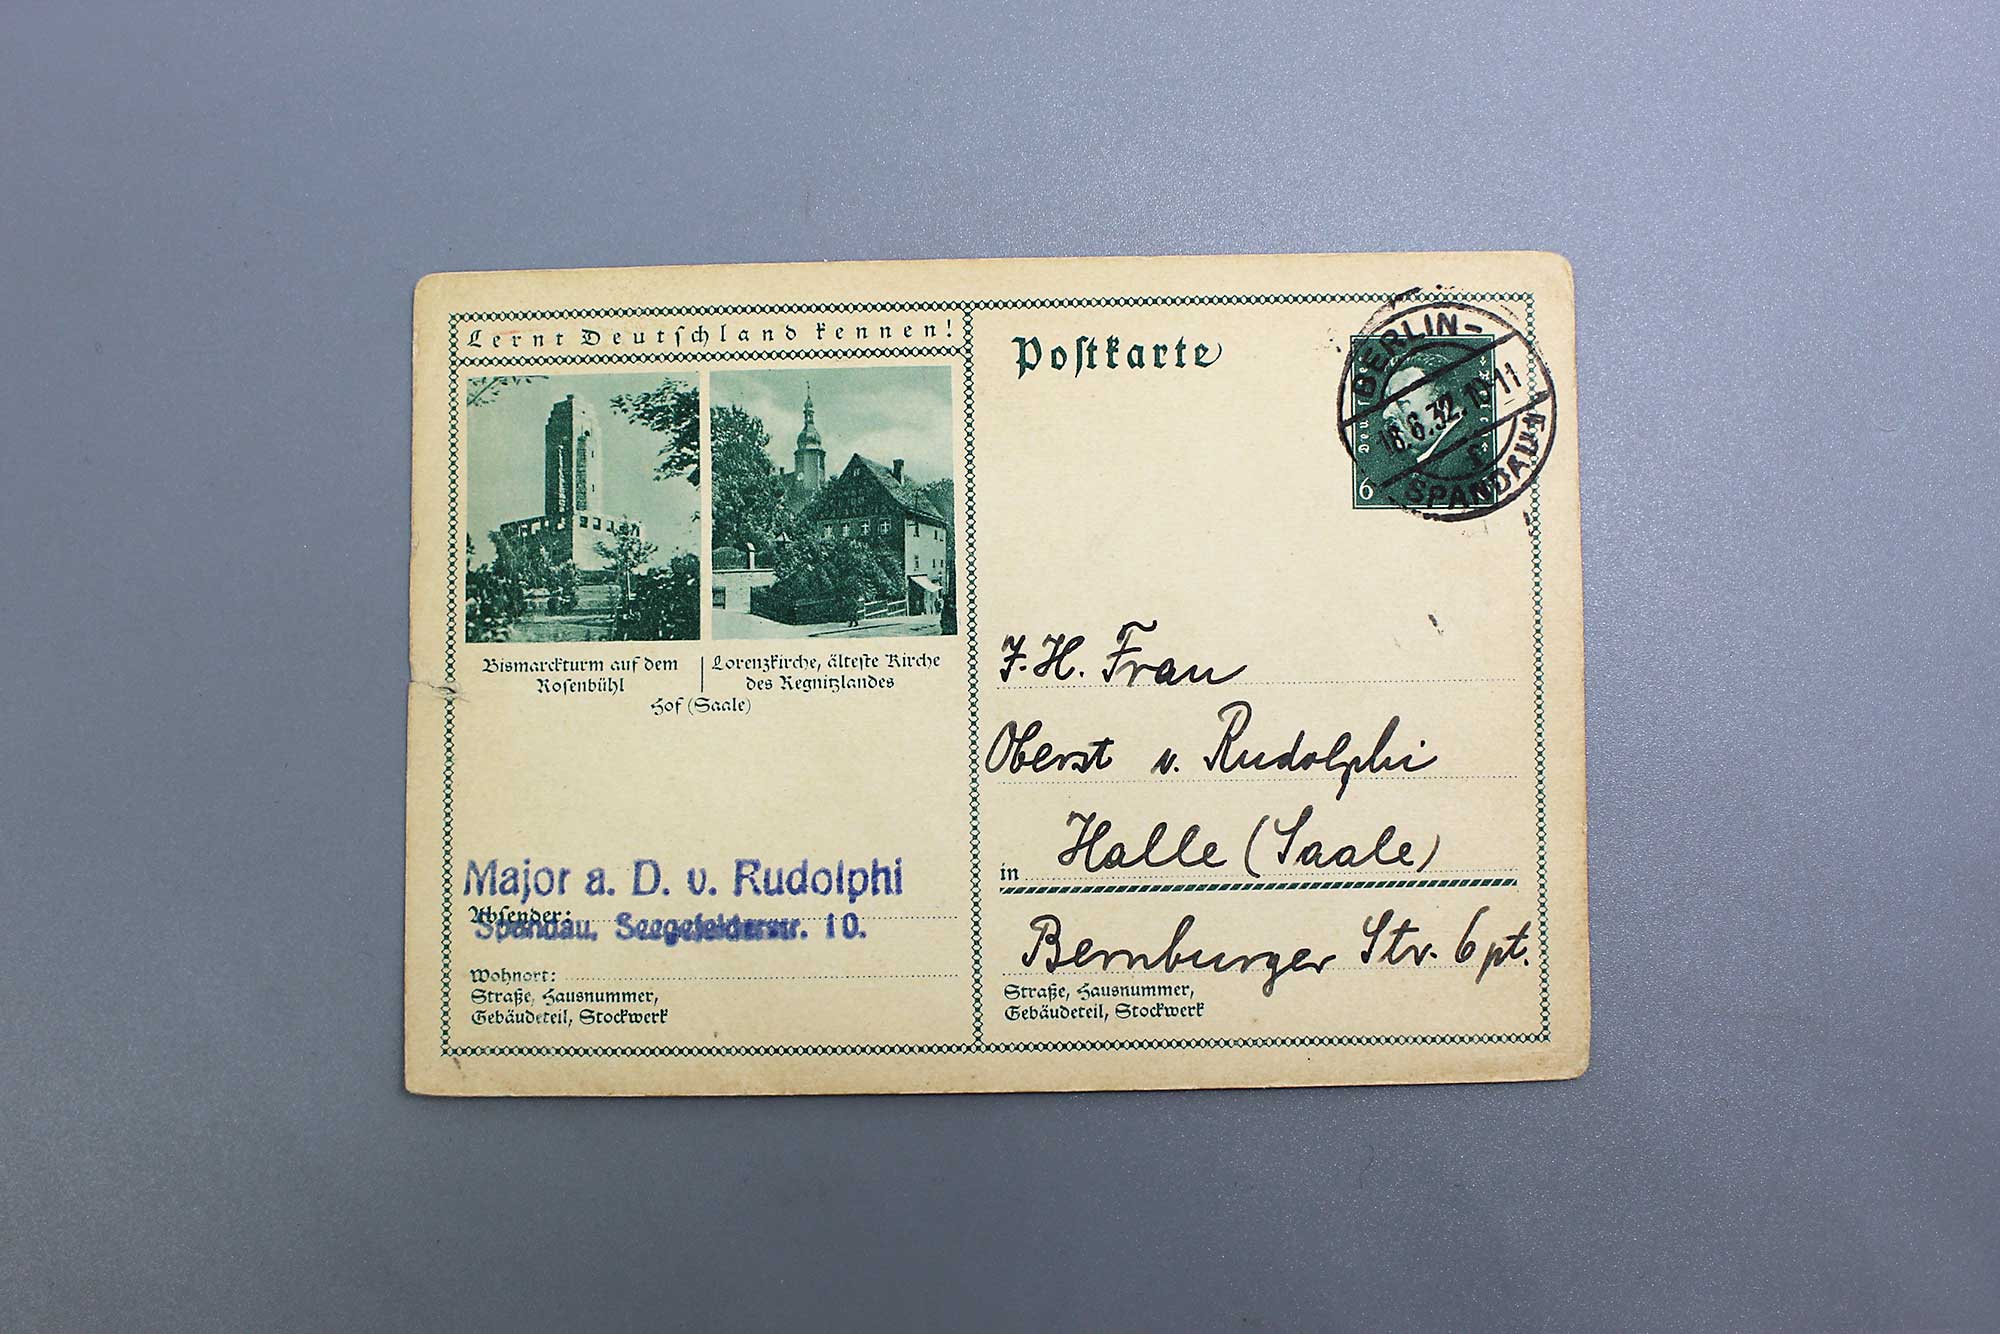 Lernt Deutschland kennen!
Bismarckturm auf dem
Rosenbühl
Lorenzkirche, älteste Kirche
des Regnitzlandes
Hof (Saale)
Major a. D. v. Rudolphi
Absender:
Spandau, Seegefelderstr. 10.
Wohnort:
Straße, Hausnummer,
Gebäudeteil, Stockwerk
Postkarte
BERLIN-
18.6.32. 10-11
SPANDAU 1
6
J. H. Frau
Oberst v. Rudolphi
in Halle (Saale)
Bernburger Str. 6 pt.
Straße, Hausnummer,
Gebäudeteil, Stockwerk